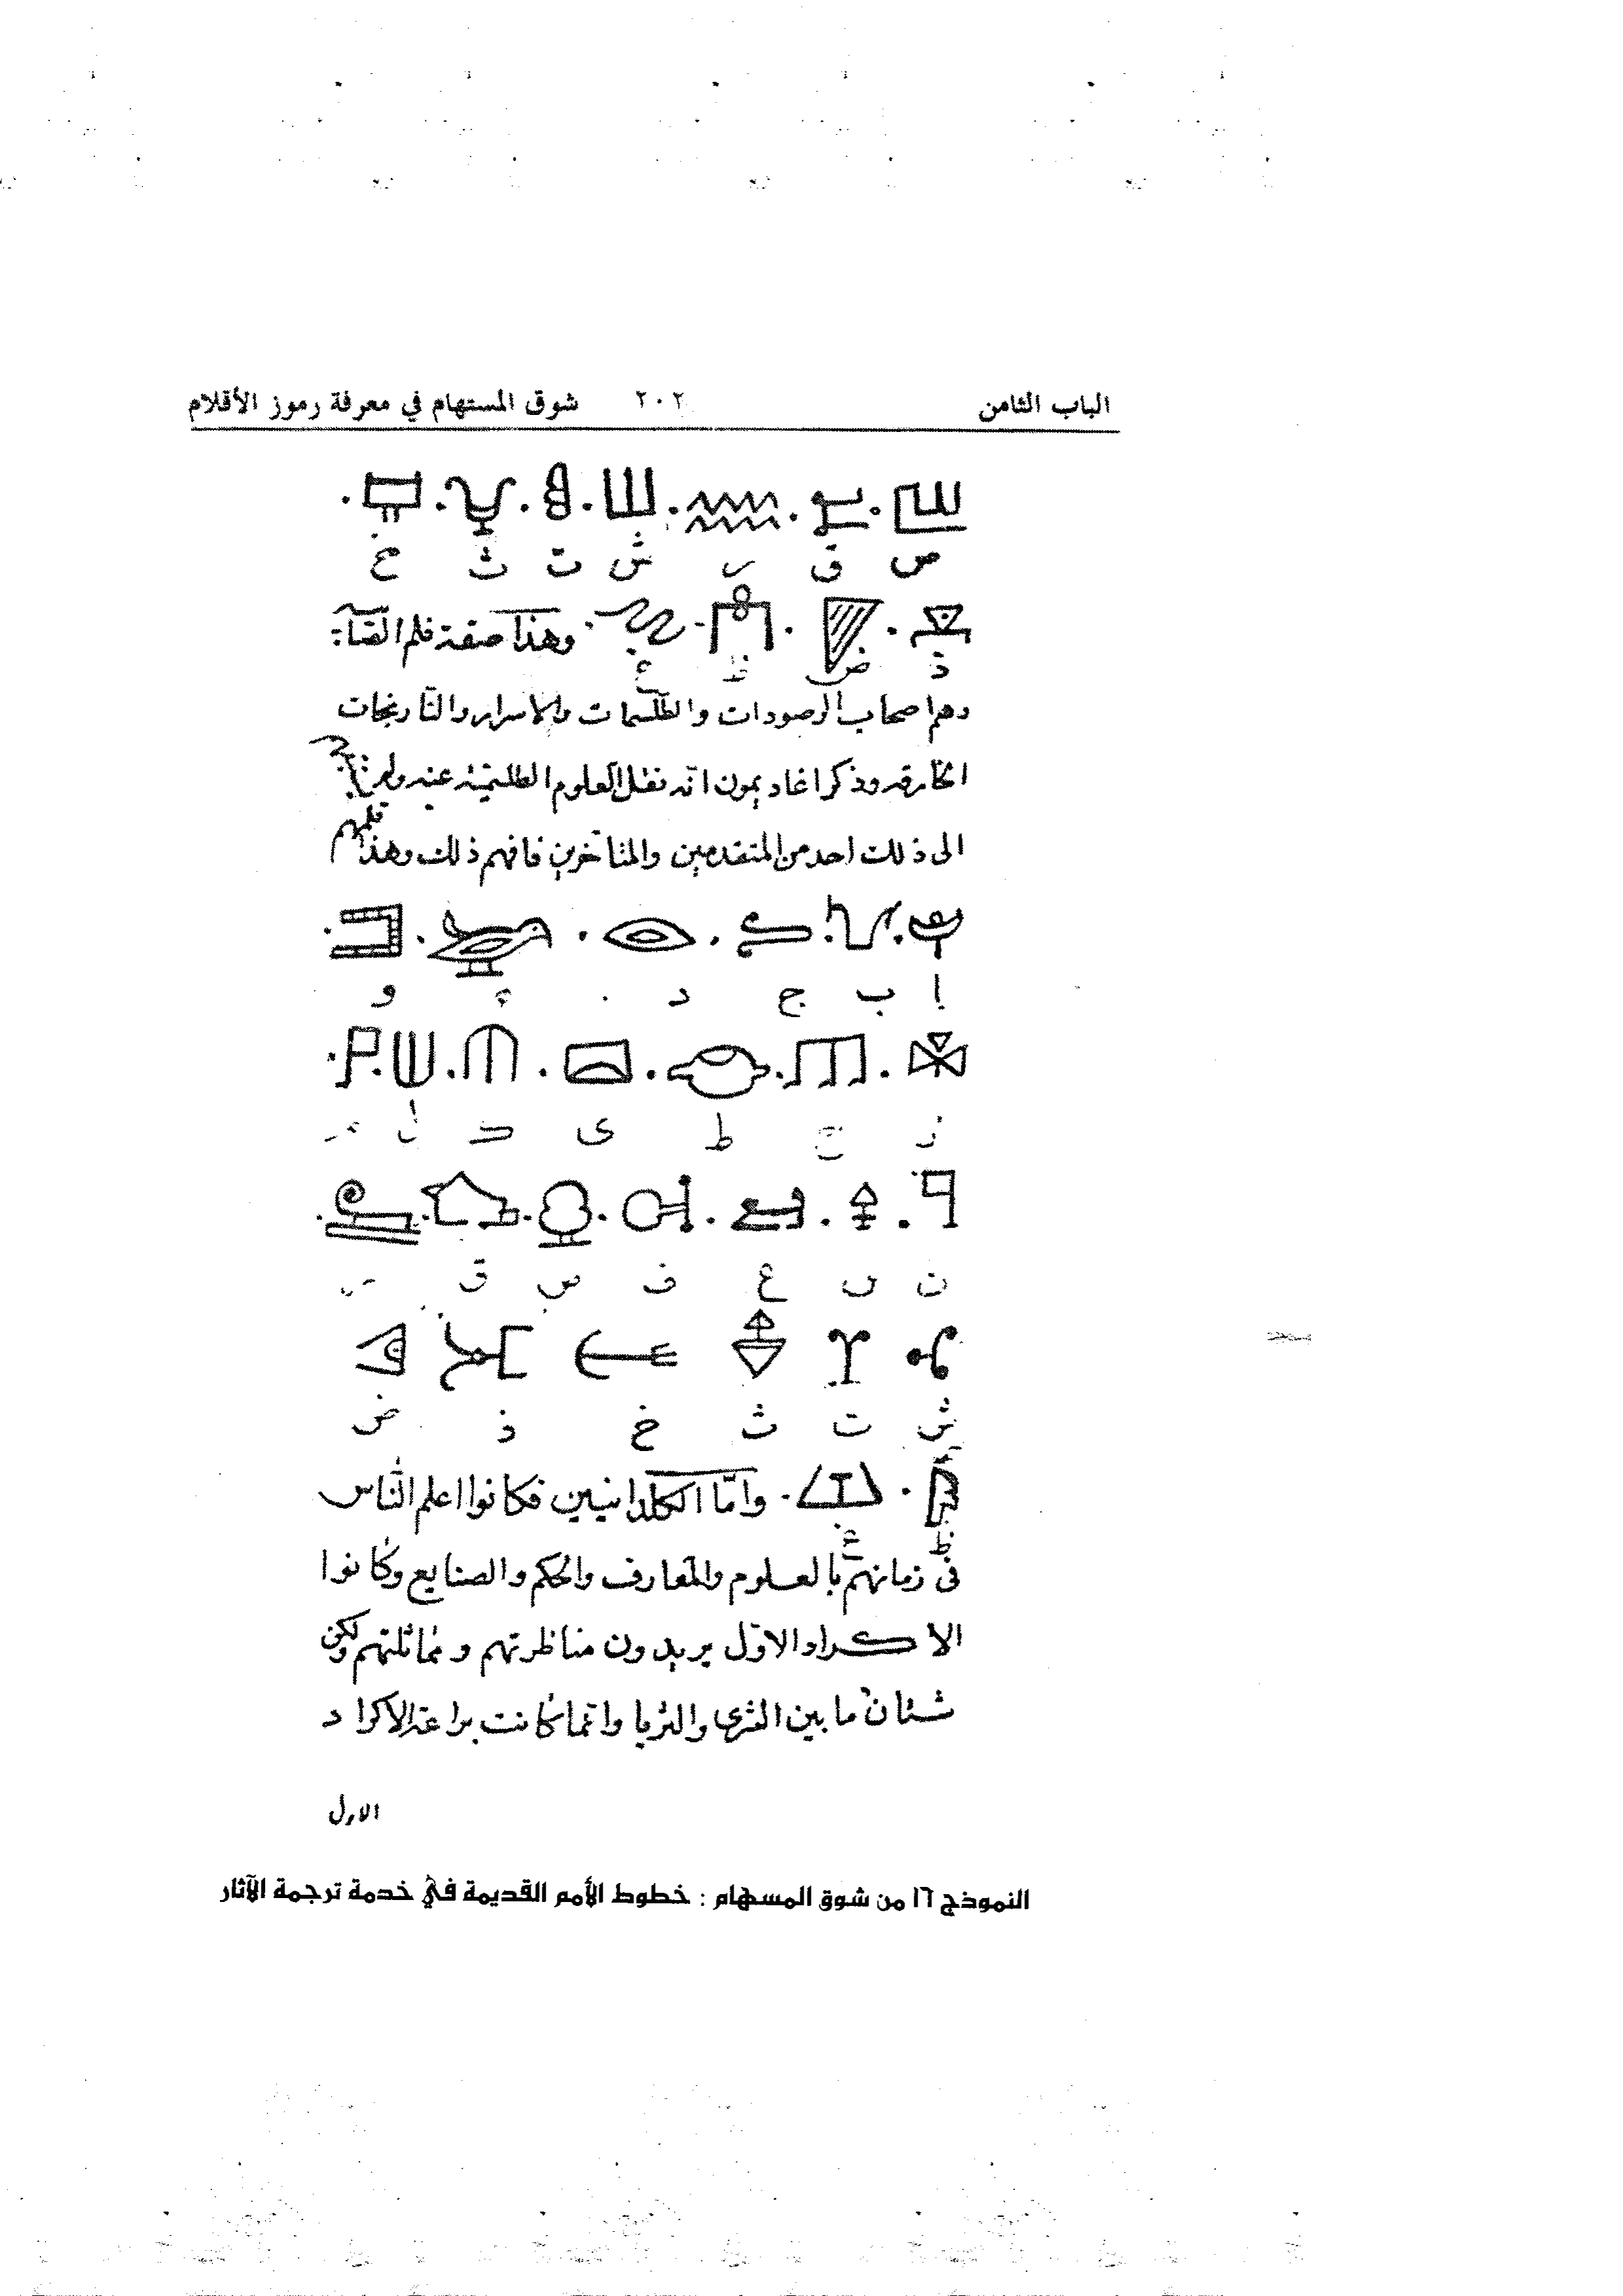 الباب الثامن ٢٠٢ شوق المستهام في معرفة رموز الأقلام
ص ق ر ش ت ث خ
وهذا صفة قلم
ذ ض ظ غ
وهم اصحاب الرصودات والطلسمات والاسرار والنارنجات
الخارقه وذكر اغاديمون انه نقل العلوم الطلسمية عنه ولم
الى ذلك احد من المتقدمين والمتأخرين فافهم ذلك وهذا قلمهم
ا ب ج د و
ز ح ط ى ك ل
ن س ع ف ص ق
ش ت ث خ ذ ض
وامّا الكلدانيين فكانوا اعلم النّاس
ظ غ
فى زمانهم بالعلوم والمعارف والحكم والصنايع وكانوا
الاكراد الاوّل يريدون مناظرتهم ومماثلتهم ولكن
شتّان ما بين الثرى والثريا وانّما كانت براعة الاكراد
الاول
النموذج ١٦ من شوق المسهام : خطوط الأمم القديمة في خدمة ترجمة الآثار